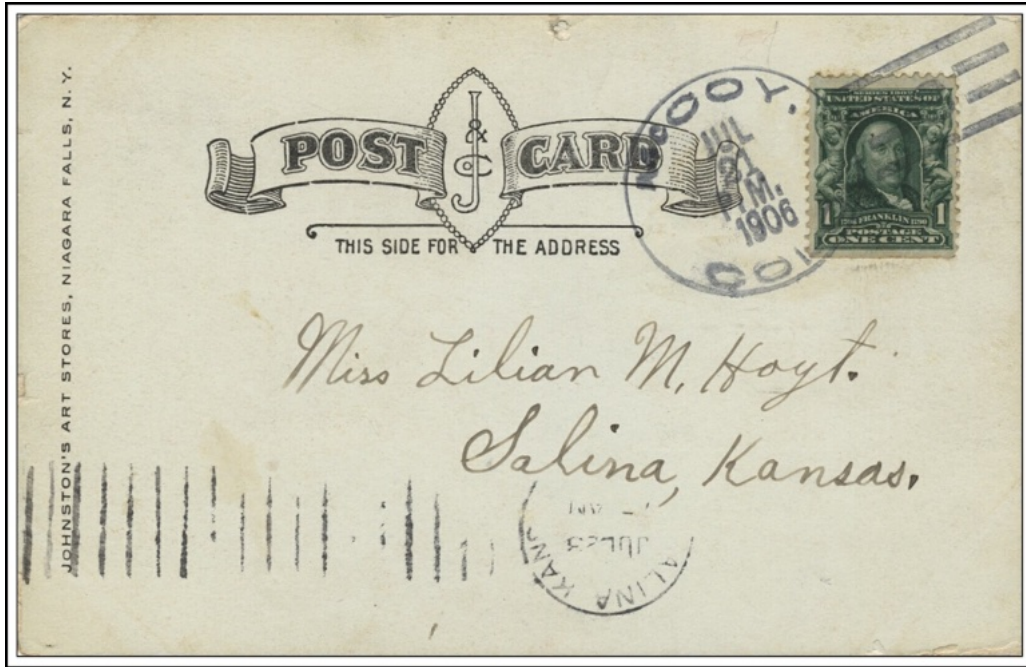 JOHNSTON'S ART STORES, NIAGARA FALLS, N. Y.
POST CARD
J & Co
THIS SIDE FOR THE ADDRESS
McCOY,
JUL
21
P.M.
1906
COLO
SERIES 1902
UNITED STATES OF
AMERICA
1706 FRANKLIN 1790
1 1
POSTAGE
ONE CENT
Miss Lilian M. Hoyt.
Salina, Kansas.
ALINA KANS
JUL 23
AM